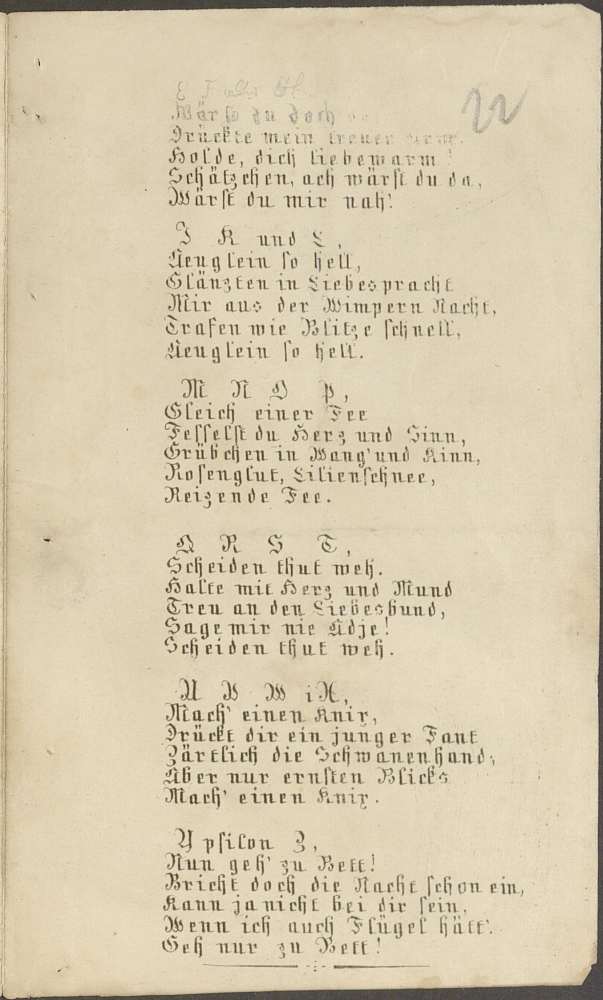 22
E F
Wärst du doch
Drückte mein treuer
Holde, dich liebewarm!
Schätzchen, ach wärst du da,
Wärst du mir nah!
I K und L,
Aeuglein so hell,
Glänzten in Liebespracht
Mir aus der Wimpern Nacht,
Trafen wie Blitze schnell,
Aeuglein so hell.
M N O P,
Gleich einer Fee
Fesselst du Herz und Sinn,
Grübchen in Wang' und Kinn,
Rosenglut, Lilienschnee,
Reizende Fee.
Q R S T,
Scheiden thut weh.
Halte mit Herz und Mund
Treu an den Liebesbund,
Sage mir nie Adje!
Scheiden thut weh.
U V W iX,
Mach' einen Knix,
Drückt dir ein junger Fant
Zärtlich die Schwanenhand;
Aber nur ernsten Blicks
Mach' einen Knix.
Ypsilon Z,
Nun geh' zu Bett!
Bricht doch die Nacht schon ein,
Kann ja nicht bei dir sein,
Wenn ich auch Flügel hätt'.
Geh nur zu Bett!